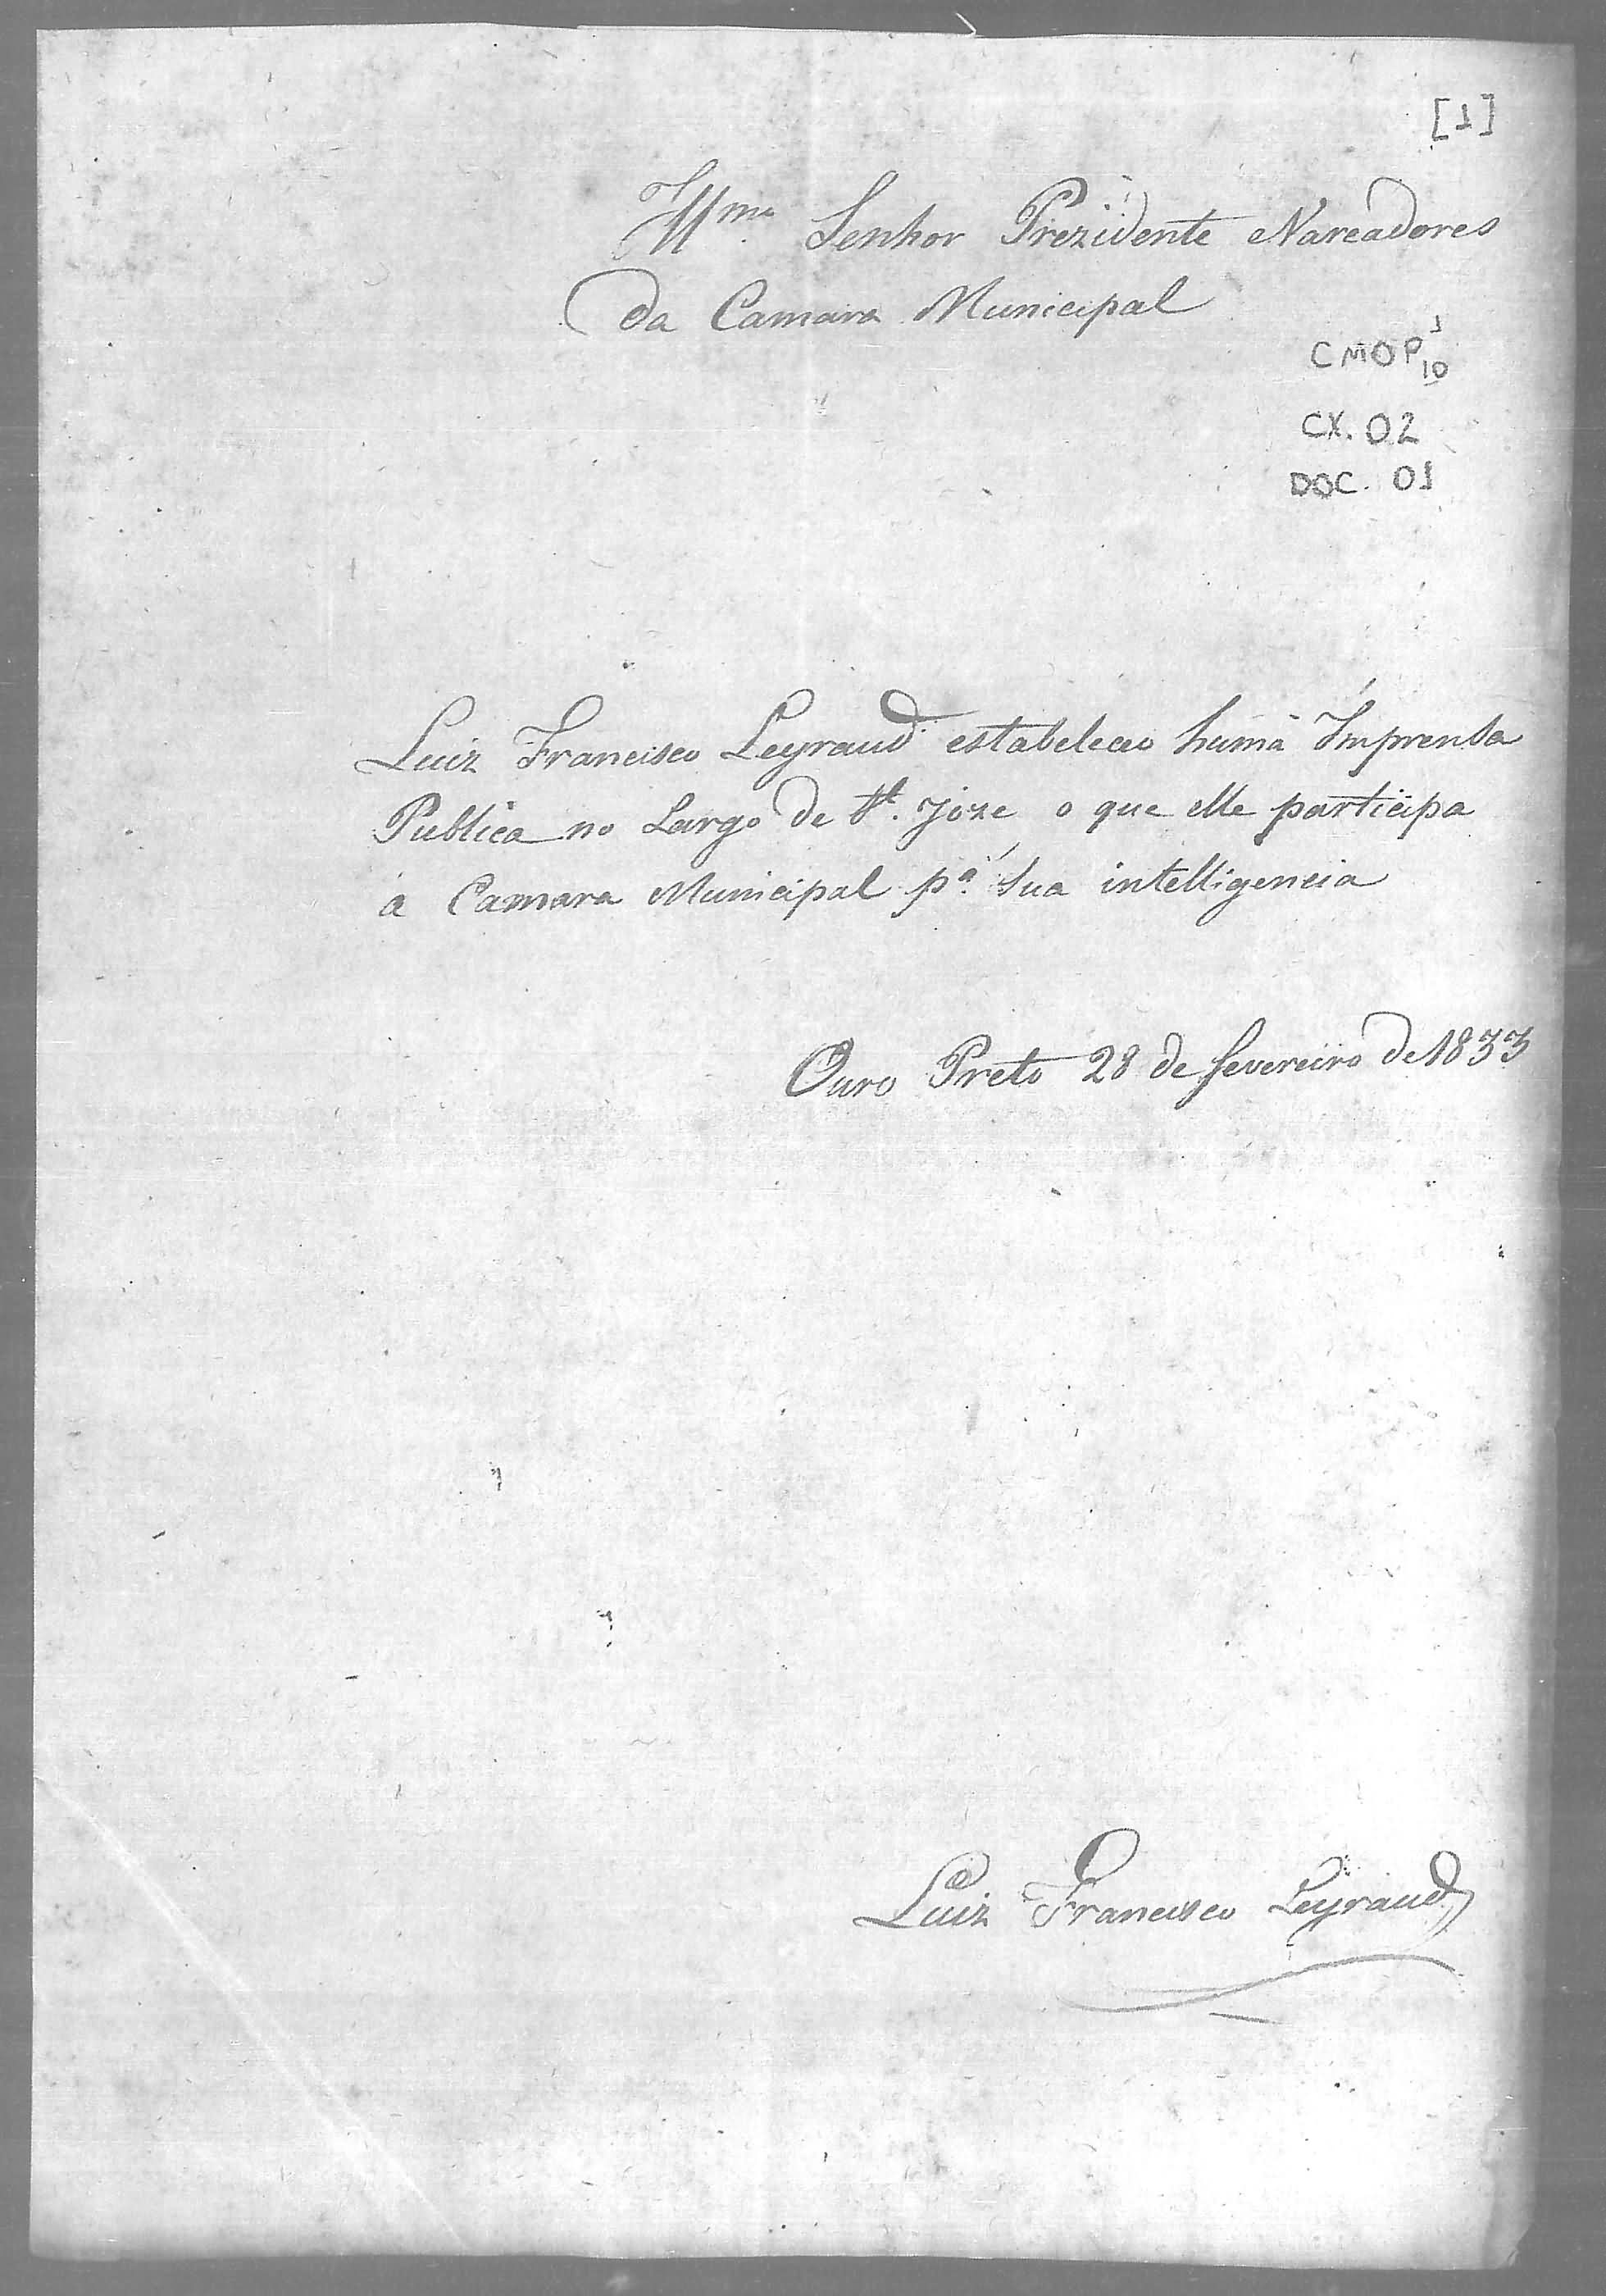 [1]
Illmo Senhor Prezidente e Vareadores
da Camara Municipal
CMOP 1/10
CX. 02
DOC. 01
Luiz Francisco Leyraud estabeleceo huma Imprensa
Publica no Largo de St. Joze o que elle participa
a Camara Municipal pa. sua intelligencia
Ouro Preto 28 de fevereiro de 1833
Luiz Francisco Leyraud